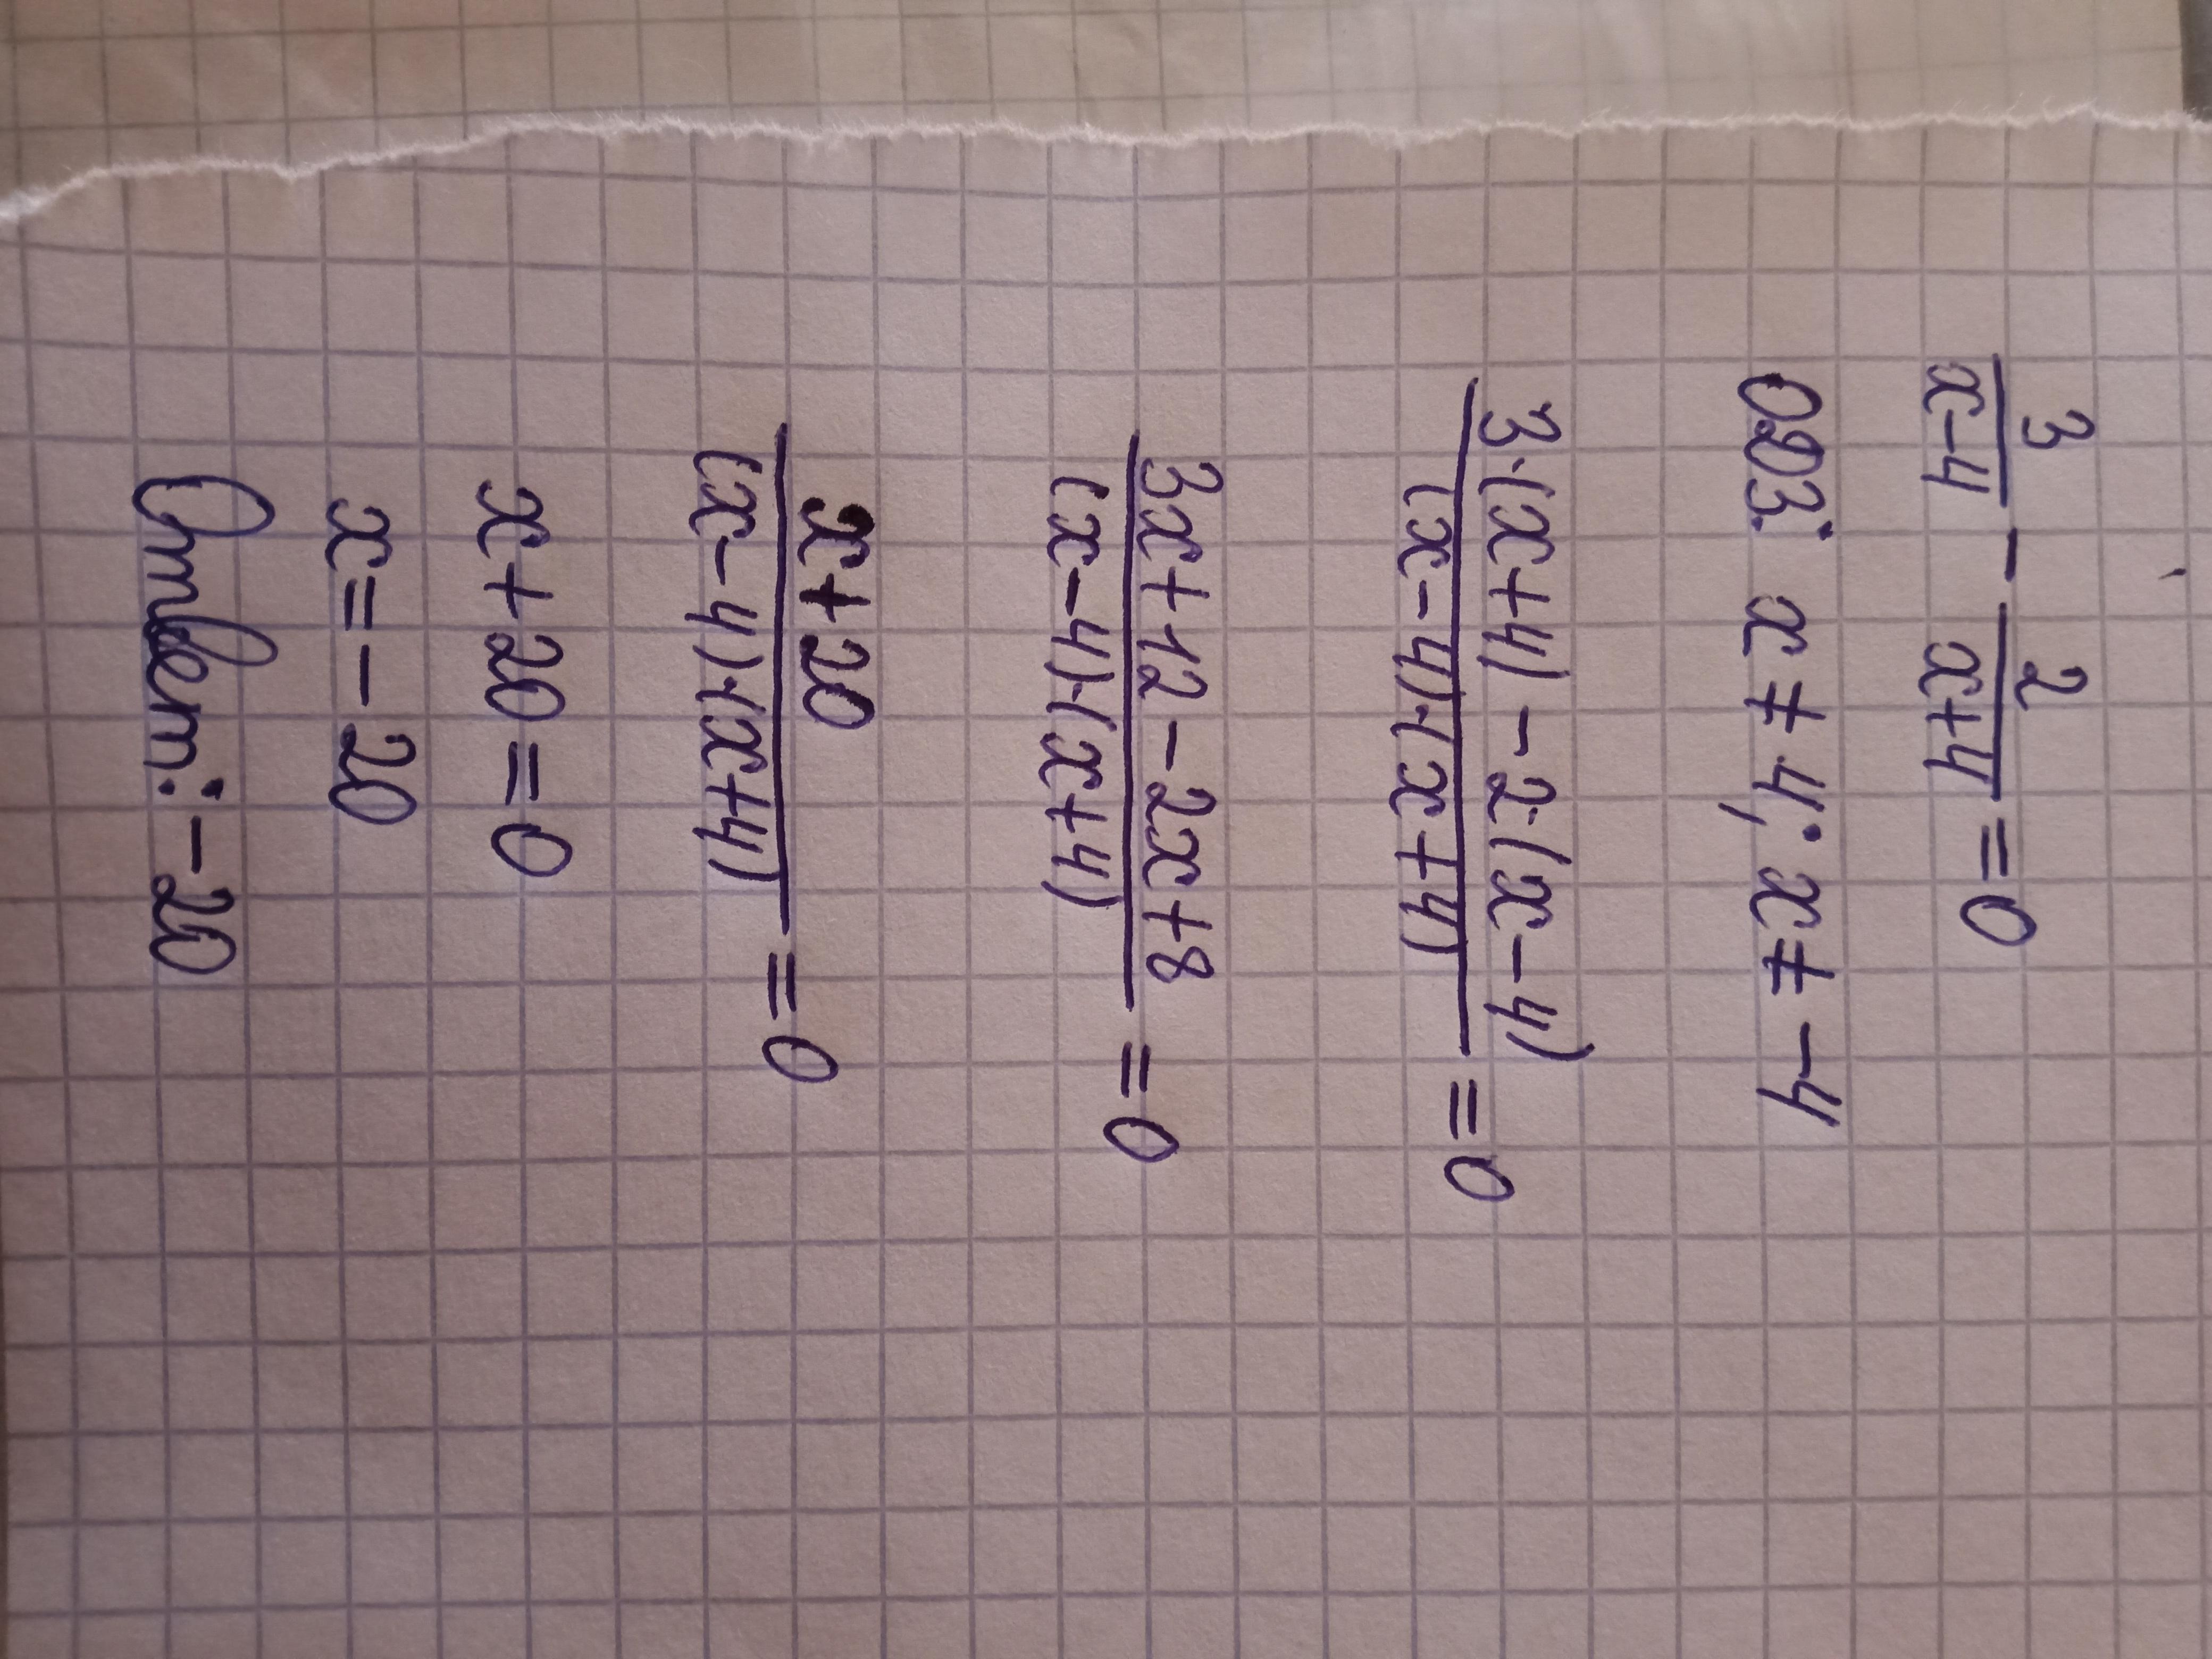 3/(x-4) - 2/(x+4) = 0
ОДЗ: x ≠ 4; x ≠ -4
(3·(x+4) - 2·(x-4))/((x-4)·(x+4)) = 0
(3x+12-2x+8)/((x-4)·(x+4)) = 0
(x+20)/((x-4)·(x+4)) = 0
x+20=0
x=-20
Ответ: -20